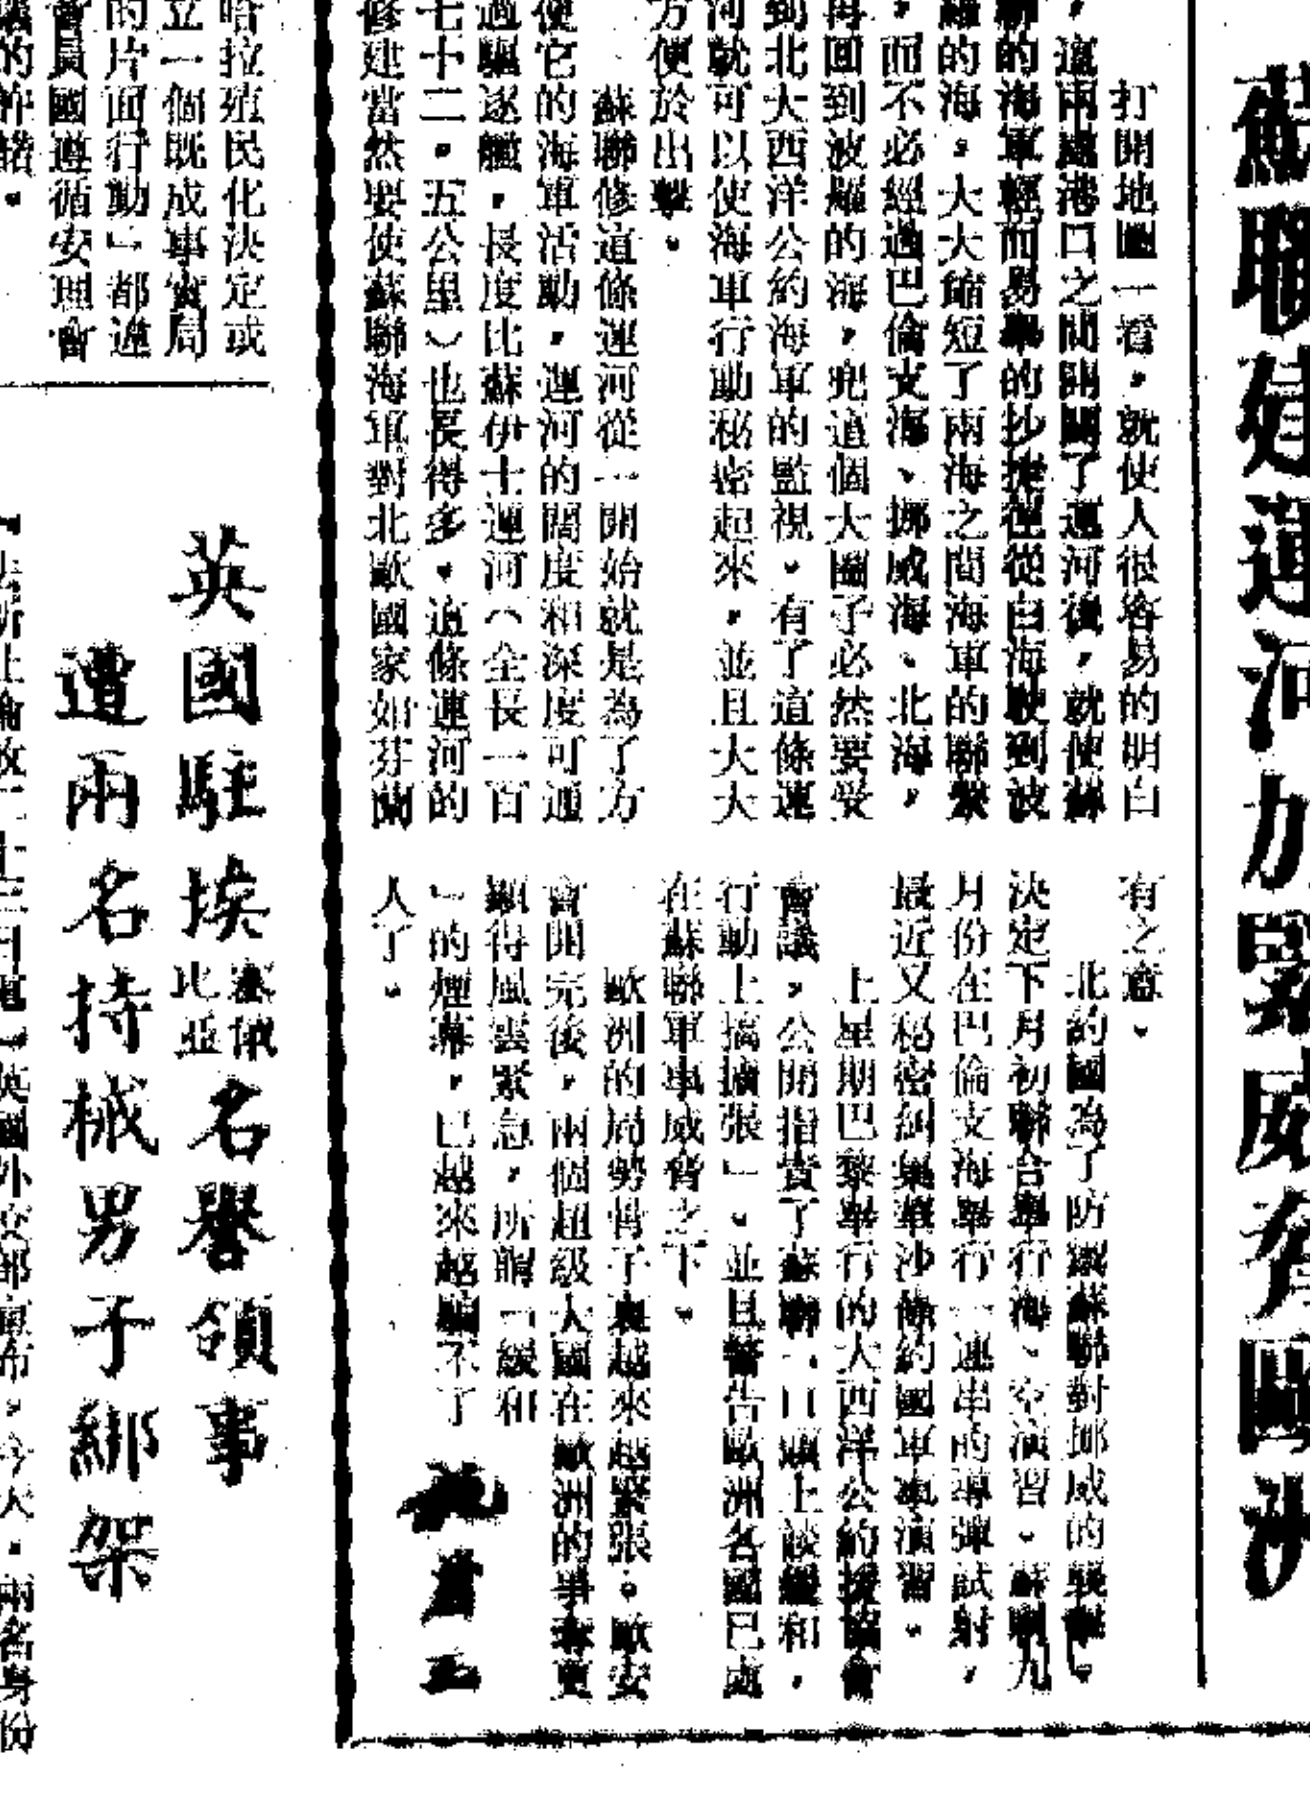 蘇聯建運河加緊威脅歐洲
打開地圖一看，就使人很容易的明白
，這兩處港口之間開闢了運河後，就使蘇
聯的海軍輕而易舉的抄捷徑從白海駛到波
羅的海，大大縮短了兩海之間海軍的聯繫
，而不必經過巴倫支海、挪威海、北海，
再回到波羅的海，兜這個大圈子必然要受
到北大西洋公約海軍的監視。有了這條運
河就可以使海軍行動秘密起來，並且大大
方便於出擊。
蘇聯修這條運河從一開始就是為了方
便它的海軍活動，運河的闊度和深度可通
過驅逐艦，長度比蘇伊士運河（全長一百
七十二．五公里）也長得多。這條運河的
修建當然要使蘇聯海軍對北歐國家如芬蘭
有之意。
北約國為了防禦蘇聯對挪威的襲擊，
決定下月初聯合舉行海、空演習。蘇聯九
月份在巴倫支海舉行一連串的導彈試射，
最近又秘密糾集華沙條約國軍事演習。
上星期巴黎舉行的大西洋公約援協會
會議，公開指責了蘇聯「口頭上談緩和，
行動上搞擴張」。並且警告歐洲各國已處
在蘇聯軍事威脅之下。
歐洲的局勢骨子裏越來越緊張。歐安
會開完後，兩個超級大國在歐洲的爭奪更
顯得風雲緊急，所謂「緩和
」的煙幕，已越來越騙不了
人了。
哈拉殖民化決定或
立一個既成事實局
的片面行動」都違
會員國遵循安理會
議的許諾。
英國駐埃塞俄比亞名譽領事
遭兩名持械男子綁架
英國外交部宣布，今天，兩名身份